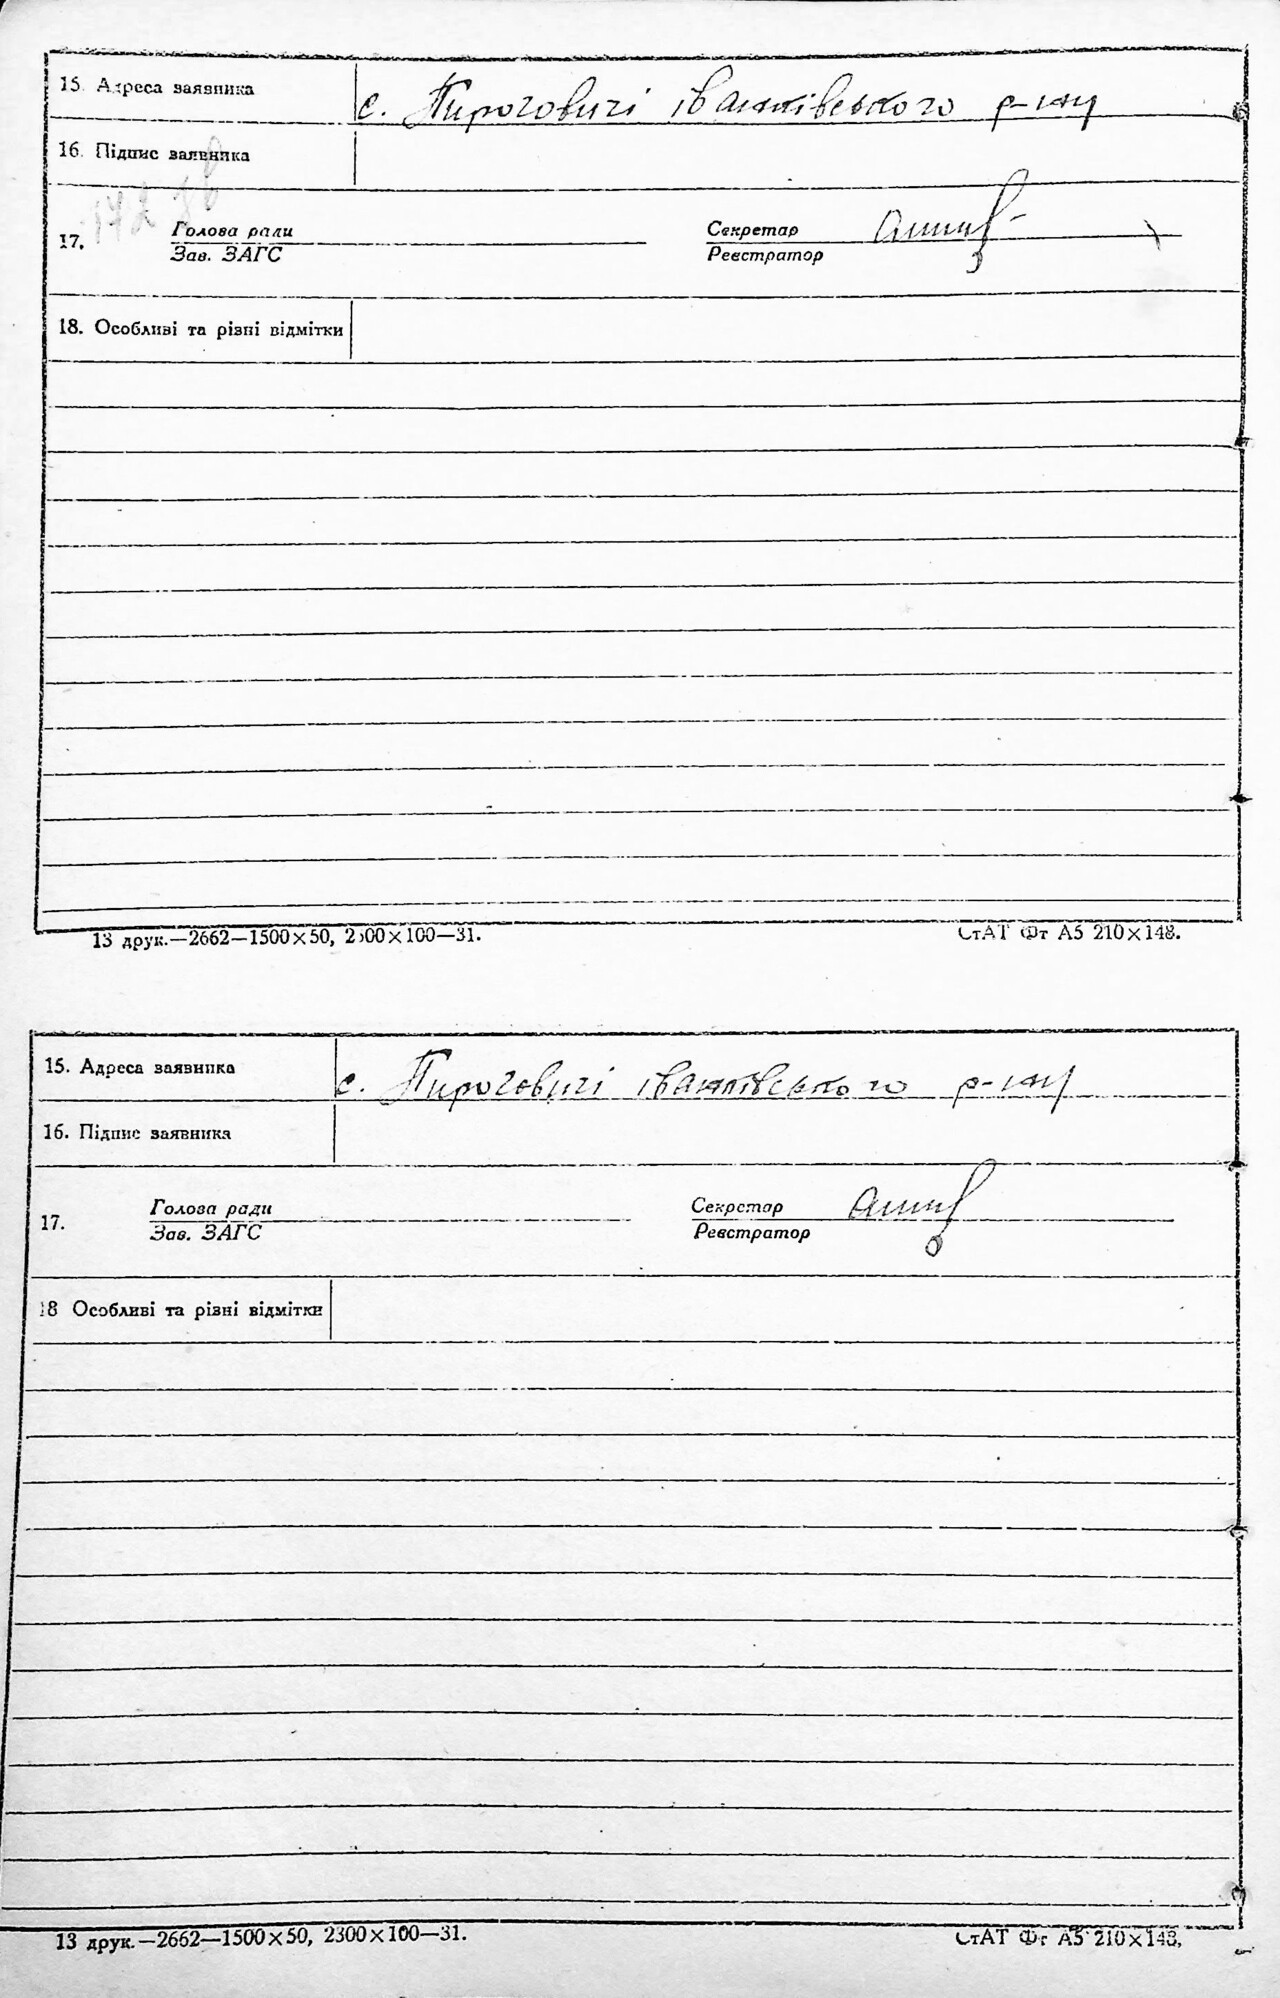 15. Адреса заявника с. Пироговичі іванківського р-ну
16. Підпис заявника
17. Голова ради Секретар
Зав. ЗАГС Реєстратор
18. Особливі та різні відмітки
13 друк.—2662—1500×50, 2300×100—31. СтАТ Фт А5 210×148.
15. Адреса заявника с. Пироговичі іванківського р-ну
16. Підпис заявника
17. Голова ради Секретар
Зав. ЗАГС Реєстратор
18 Особливі та різні відмітки
13 друк.—2662—1500×50, 2300×100—31. СтАТ Фт А5 210×148.